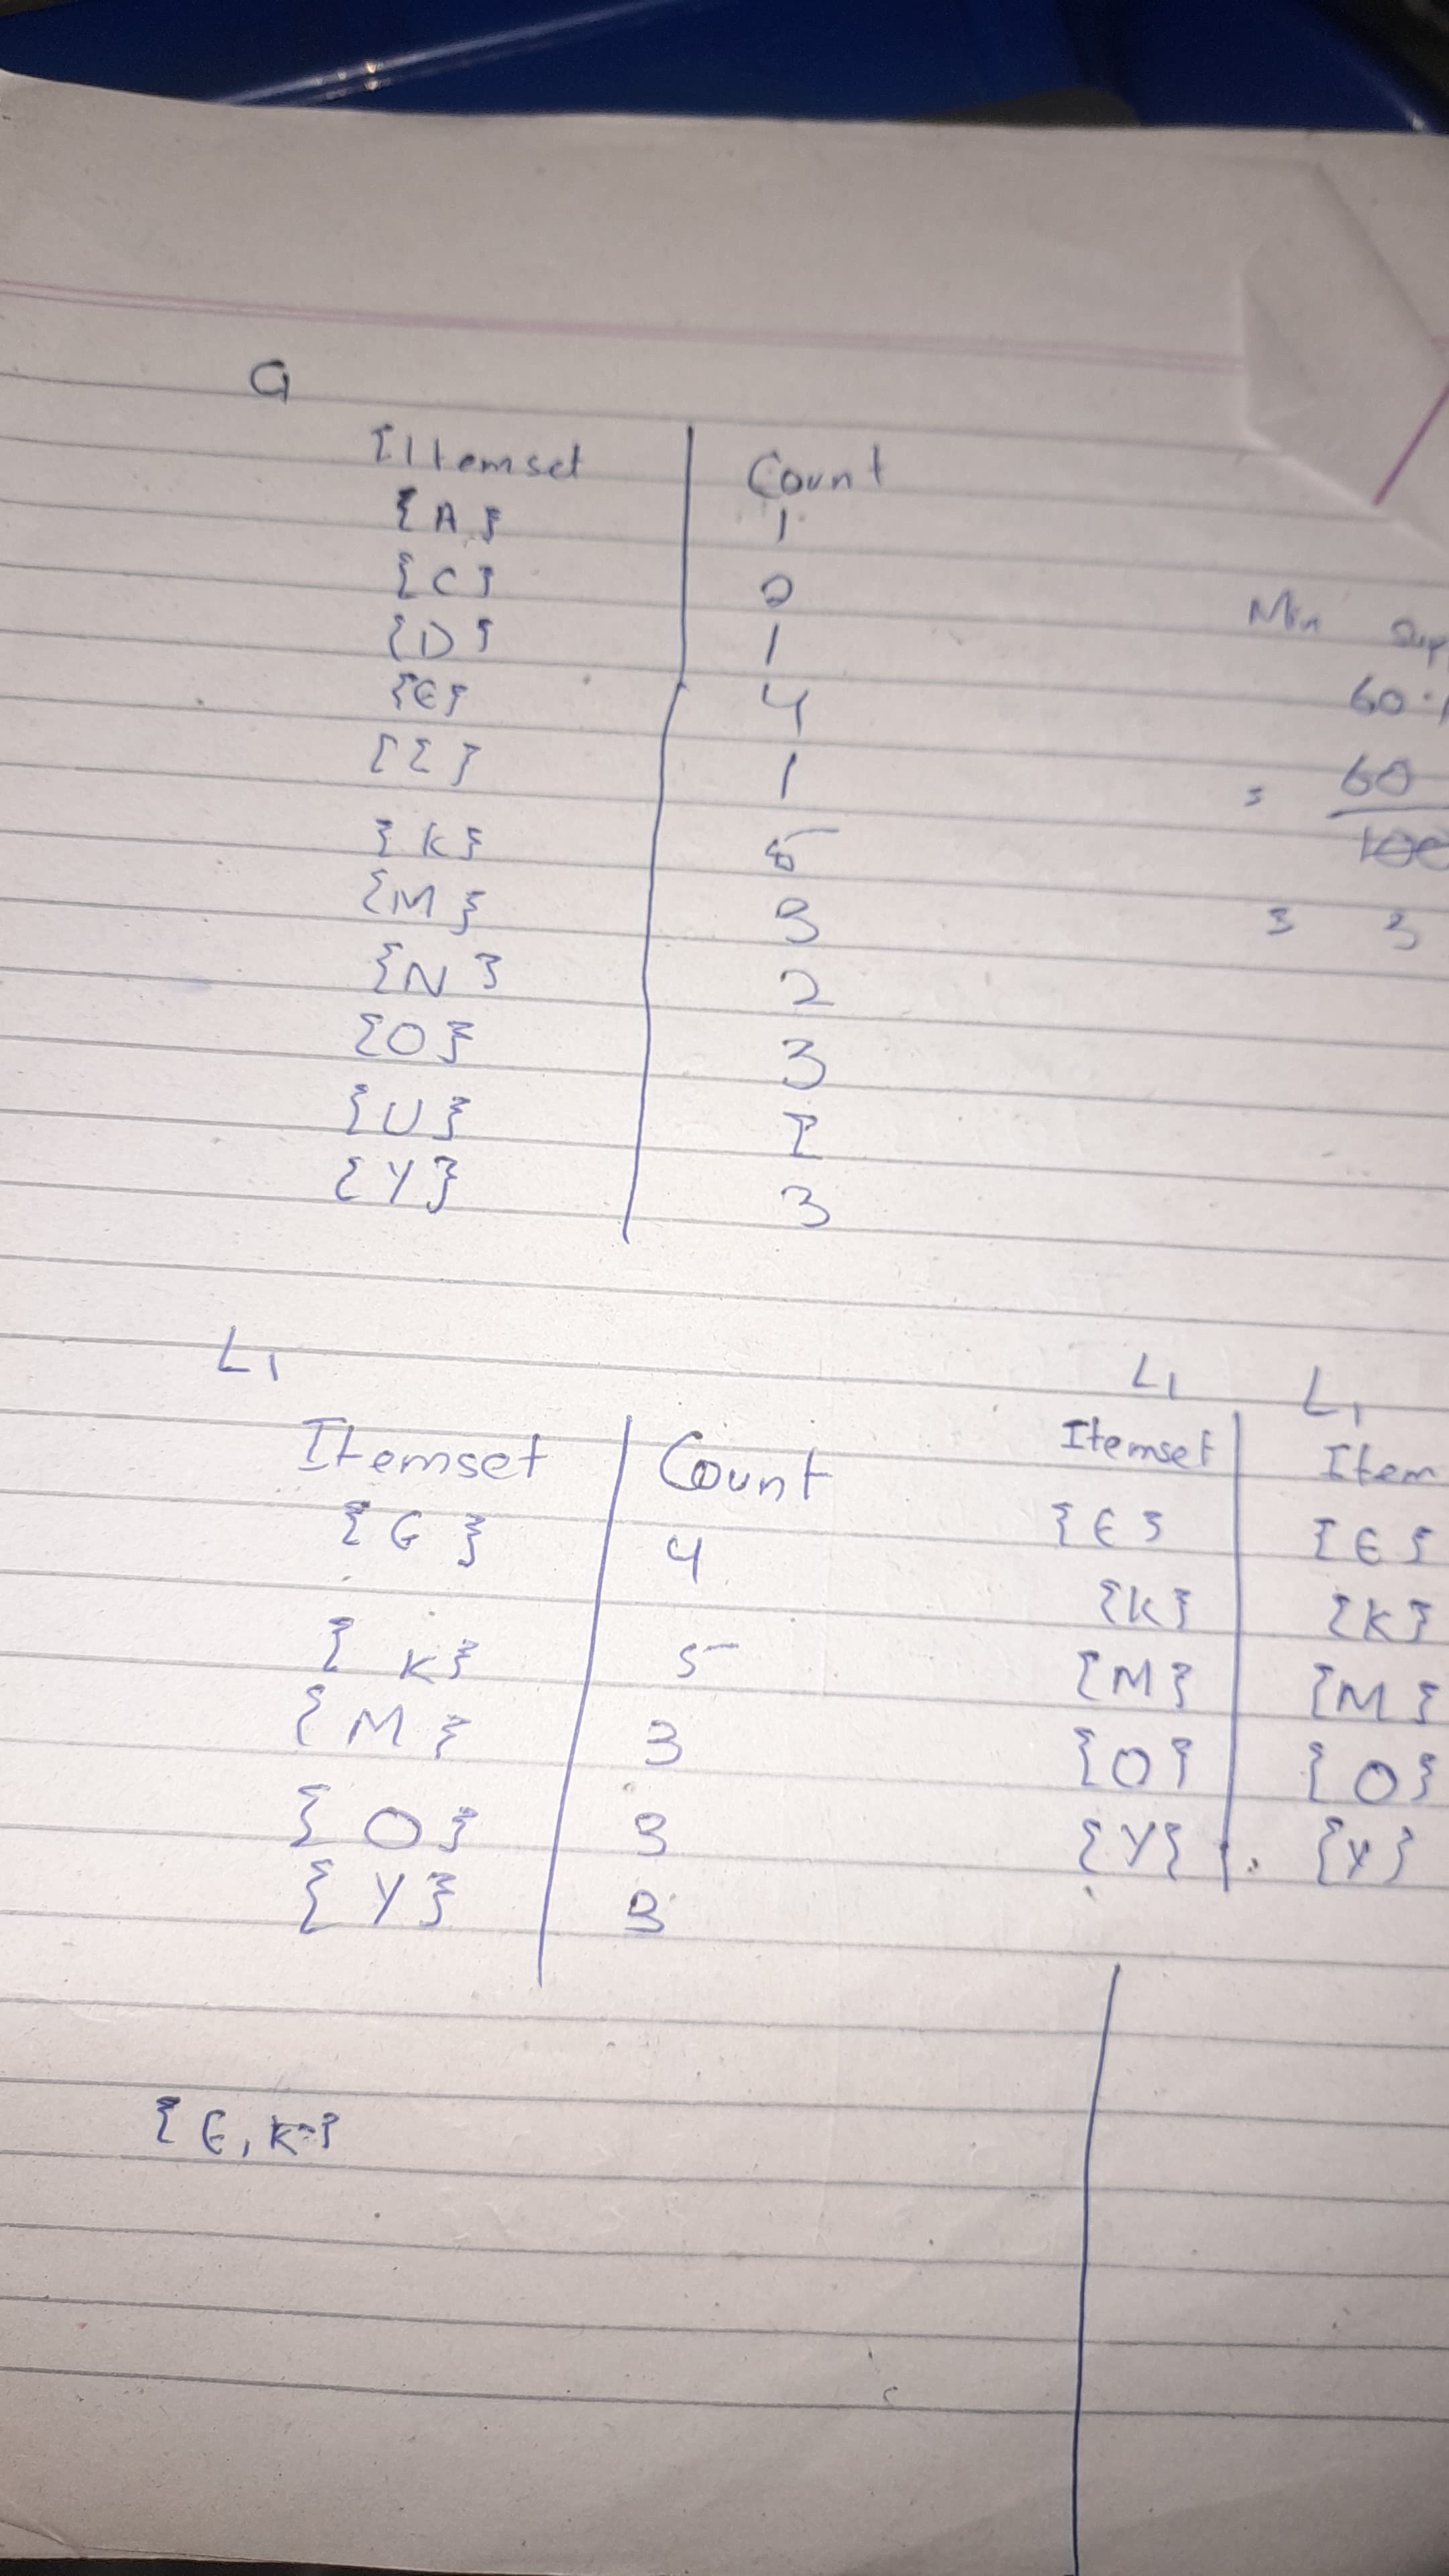 C1
Itemset Count
{A} 1
{C} 2
{D} 1
{E} 4
{I} 1
{K} 5
{M} 3
{N} 2
{O} 3
{U} 1
{Y} 3
Min Sup
60 %
= 60
100
= 3
L1
Itemset Count
{E} 4
{K} 5
{M} 3
{O} 3
{Y} 3
L1 L1
Itemset Item
{E} {E}
{K} {K}
{M} {M}
{O} {O}
{Y} {Y}
{E, K}